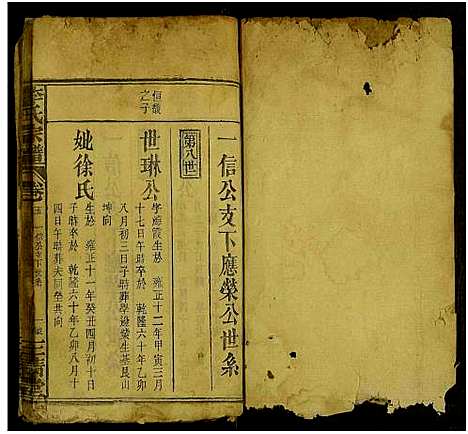 一信公支下應榮公世系
第八世
信
之子
世琳公
字
生於 雍正十二年甲寅三月
十七日午時卒於 乾隆六十年乙卯
八月初三日子時葬
坤向
妣徐氏
生於 雍正十一年癸丑四月初十日
子時卒於 乾隆六十年乙卯八月十
四日午時葬夫同塋共向
氏宗譜
卷